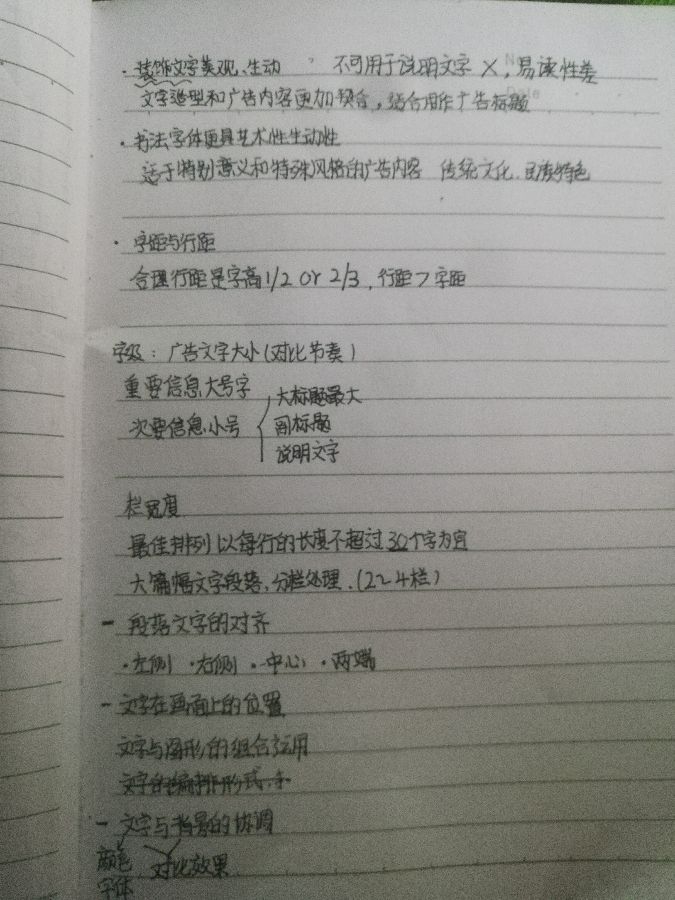 · 装饰文字美观、生动 , 不可用于说明文字 ×, 易读性差
文字造型和广告内容更加契合, 适合用作广告标题
· 书法字体更具艺术性生动性
适于特别意义和特殊风格的广告内容 传统文化、民族特色
· 字距与行距
合理行距是字高1/2 or 2/3, 行距>字距
字级: 广告文字大小(对比节奏)
重要信息大号字
次要信息小号
大标题最大
副标题
说明文字
栏宽度
最佳排列以每行的长度不超过30个字为宜
大篇幅文字段落、分栏处理.(2~4栏)
- 段落文字的对齐
· 左侧 · 右侧 · 中心 · 两端
- 文字在画面上的位置
文字与图形的组合运用
文字的编排形式
- 文字与背景的协调
颜色 对比效果
字体